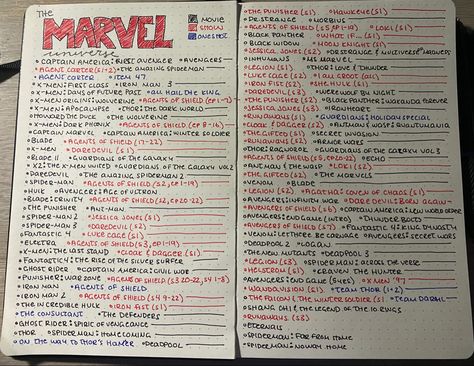 The
MARVEL
universe
MOVIE
SHOW
ONESHOT
CAPTAIN AMERICA: FIRST AVENGER AVENGERS
AGENT CARTER (S1+2) THE AMAZING SPIDERMAN
AGENT CARTER ITEM 47
X-MEN: FIRST CLASS IRON MAN 3
X-MEN: DAYS OF FUTURE PAST ALL HAIL THE KING
X-MEN ORIGINS: WOLVERINE AGENTS OF SHIELD (EP 1-7)
X-MEN: APOCALYPSE THOR: THE DARK WORLD
HOWARD THE DUCK THE WOLVERINE
X-MEN: DARK PHOENIX AGENTS OF SHIELD (EP 8-16)
CAPTAIN MARVEL CAPTAIN AMERICA: WINTER SOLDIER
BLADE AGENTS OF SHIELD (17-22)
X-MEN DAREDEVIL (S1)
BLADE II GUARDIANS OF THE GALAXY
X2: THE X-MEN UNITED GUARDIANS OF THE GALAXY VOL 2
DAREDEVIL THE AMAZING SPIDERMAN 2
SPIDER-MAN AGENTS OF SHIELD (S2, EP 1-19)
HULK AVENGERS: AGE OF ULTRON
BLADE: TRINITY AGENTS OF SHIELD (S2, EP 20-22)
THE PUNISHER ANT-MAN
SPIDER-MAN 2 JESSICA JONES (S1)
SPIDER-MAN 3 DAREDEVIL (S2)
FANTASTIC 4 LUKE CAGE (S1)
ELEKTRA AGENTS OF SHIELD (S3, EP 1-19)
X-MEN: THE LAST STAND CLOAK & DAGGER (S1)
FANTASTIC 4: THE RISE OF THE SILVER SURFER
GHOST RIDER CAPTAIN AMERICA: CIVIL WAR
PUNISHER: WAR ZONE AGENTS OF SHIELD (S3 20-22, S4 1-8)
IRON MAN AGENTS OF SHIELD
IRON MAN 2 AGENTS OF SHIELD (S4 9-22)
THE INCREDIBLE HULK IRON FIST (S1)
THE CONSULTANT THE DEFENDERS
GHOST RIDER: SPIRIT OF VENGEANCE
THOR SPIDERMAN: HOMECOMING
ON THE WAY TO THOR'S HAMMER DEADPOOL
THE PUNISHER (S1) HAWKEYE (S1)
DR. STRANGE MORBIUS
AGENTS OF SHIELD (S5, EP 1-19) LOKI (S1)
BLACK PANTHER WHAT IF... (S1)
BLACK WIDOW MOON KNIGHT (S1)
JESSICA JONES (S2) DR STRANGE: MULTIVERSE MADNESS
INHUMANS MS MARVEL
LEGION (S1) THOR: LOVE & THUNDER
LUKE CAGE (S2) I AM GROOT (ALL)
IRON FIST (S2) SHE HULK (S1)
DAREDEVIL (S3) WEREWOLF BY NIGHT
THE PUNISHER (S2) BLACK PANTHER: WAKANDA FOREVER
JESSICA JONES (S3) IRONHEART
RUNAWAYS (S1) GUARDIANS: HOLIDAY SPECIAL
CLOAK & DAGGER (S2) ANTMAN & WASP: QUANTUMANIA
THE GIFTED (S1) SECRET INVASION
RUNAWAYS (S2) ARMOR WARS
THOR: RAGNAROK GUARDIANS OF THE GALAXY VOL 3
AGENTS OF SHIELD (S5, EP 20-22) ECHO
ANTMAN & THE WASP LOKI (S2)
THE GIFTED (S2) THE MARVELS
VENOM BLADE
LEGION (S2) AGATHA: COVEN OF CHAOS (S1)
AVENGERS: INFINITY WAR DAREDEVIL: BORN AGAIN
AGENTS OF SHIELD (S6) CAPTAIN AMERICA: NEW WORLD ORDER
AVENGERS: END GAME (INTRO) THUNDERBOLTS
AGENTS OF SHIELD (S7) FANTASTIC 4: KANG DYNASTY
VENOM: LET THERE BE CARNAGE AVENGERS: SECRET WARS
DEADPOOL 2 LOGAN
THE NEW MUTANTS DEADPOOL 3
LEGION (S3) SPIDERMAN: ACROSS THE VERSE
HELSTROM (S1) CRAVEN THE HUNTER
AVENGERS: END GAME (5 YRS) X-MEN '97
WANDAVISION (S1) TEAM THOR (1+2)
THE FALCON & THE WINTER SOLDIER (S1) TEAM DARRYL
SHANG CHI & THE LEGEND OF THE 10 RINGS
RUNAWAYS (S3)
ETERNALS
SPIDERMAN: FAR FROM HOME
SPIDERMAN: NO WAY HOME